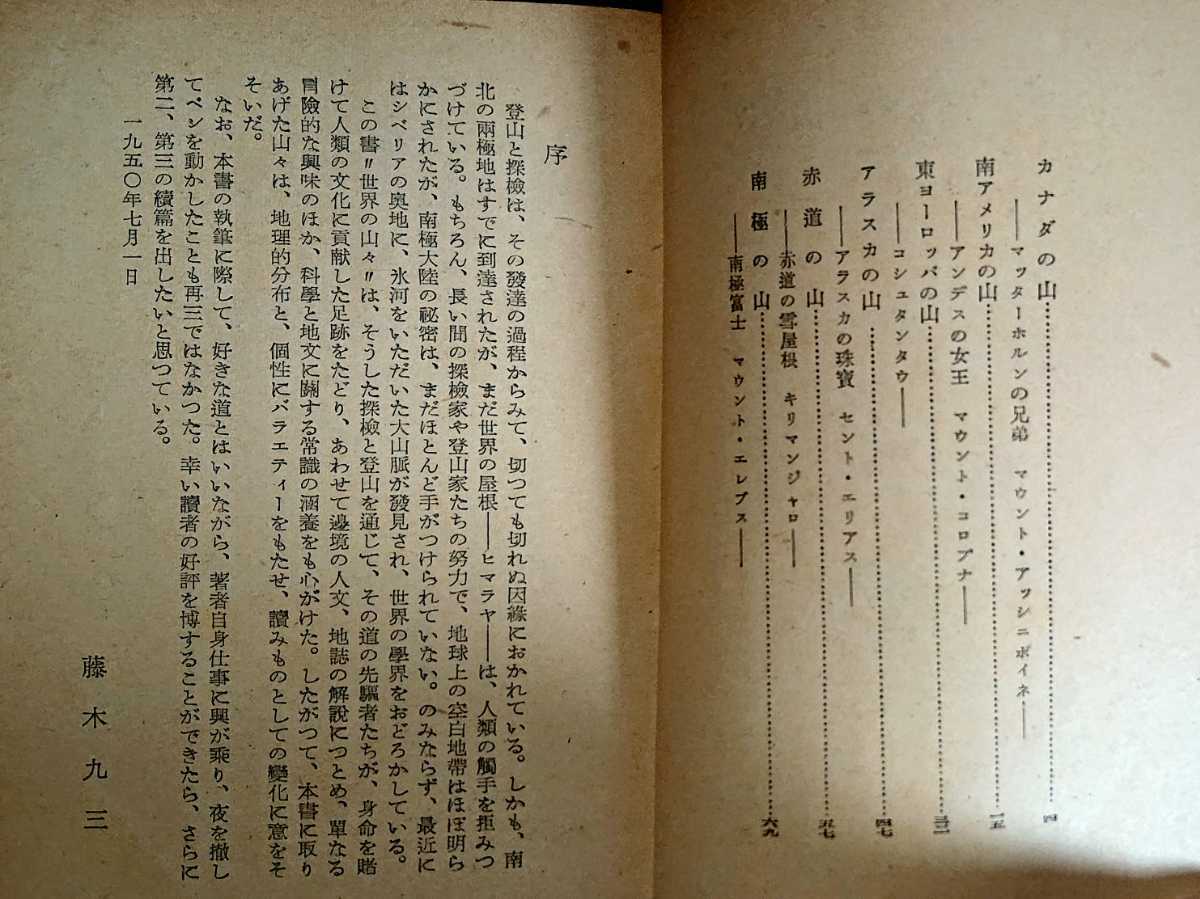 カナダの山……………四
――マッターホルンの兄弟 マウント・アッシニボイネ――
南アメリカの山……………一五
――アンデスの女王 マウント・コロプナ――
東ヨーロッパの山……………三二
――コシュタンタウ――
アラスカの山……………四七
――アラスカの珠寶 セント・エリアス――
赤道の山……………五七
――赤道の雪屋根 キリマンジャロ――
南極の山……………六九
――南極富士 マウント・エレブス――
序
登山と探檢は、その發達の過程からみて、切つても切れぬ因緣におかれている。しかも、南
北の兩極地はすでに到達されたが、まだ世界の屋根――ヒマラヤ――は、人類の觸手を拒みつ
づけている。もちろん、長い間の探檢家や登山家たちの努力で、地球上の空白地帶はほぼ明ら
かにされたが、南極大陸の祕密は、まだほとんど手がつけられていない。のみならず、最近に
はシベリアの奧地に、氷河をいただいた大山脈が發見され、世界の學界をおどろかしている。
この書〃世界の山々〃は、そうした探檢と登山を通じて、その道の先驅者たちが、身命を賭
けて人類の文化に貢献した足跡をたどり、あわせて邊境の人文、地誌の解說につとめ、單なる
冒險的な興味のほか、科學と地文に關する常識の涵養をも心がけた。したがつて、本書に取り
あげた山々は、地理的分布と、個性にバラエティーをもたせ、讀みものとしての變化に意をそ
そいだ。
なお、本書の執筆に際して、好きな道とはいいながら、著者自身仕事に興が乘り、夜を撤し
てペンを動かしたことも再三ではなかつた。幸い讀者の好評を博することができたら、さらに
第二、第三の續篇を出したいと思つている。
一九五〇年七月一日
藤木九三